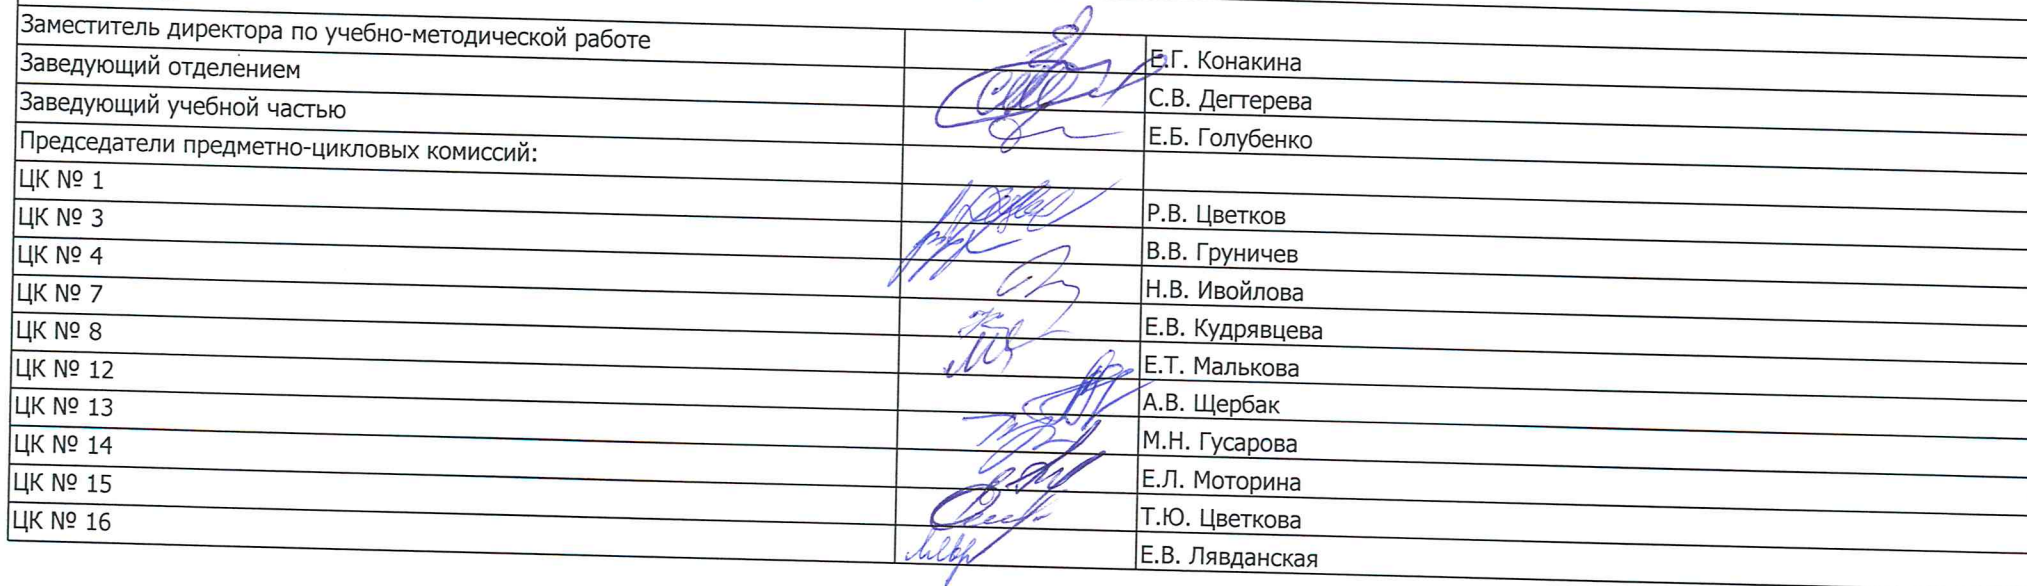 Заместитель директора по учебно-методической работе Е.Г. Конакина
Заведующий отделением С.В. Дегтерева
Заведующий учебной частью Е.Б. Голубенко
Председатели предметно-цикловых комиссий:
ЦК № 1 Р.В. Цветков
ЦК № 3 В.В. Груничев
ЦК № 4 Н.В. Ивойлова
ЦК № 7 Е.В. Кудрявцева
ЦК № 8 Е.Т. Малькова
ЦК № 12 А.В. Щербак
ЦК № 13 М.Н. Гусарова
ЦК № 14 Е.Л. Моторина
ЦК № 15 Т.Ю. Цветкова
ЦК № 16 Е.В. Лявданская